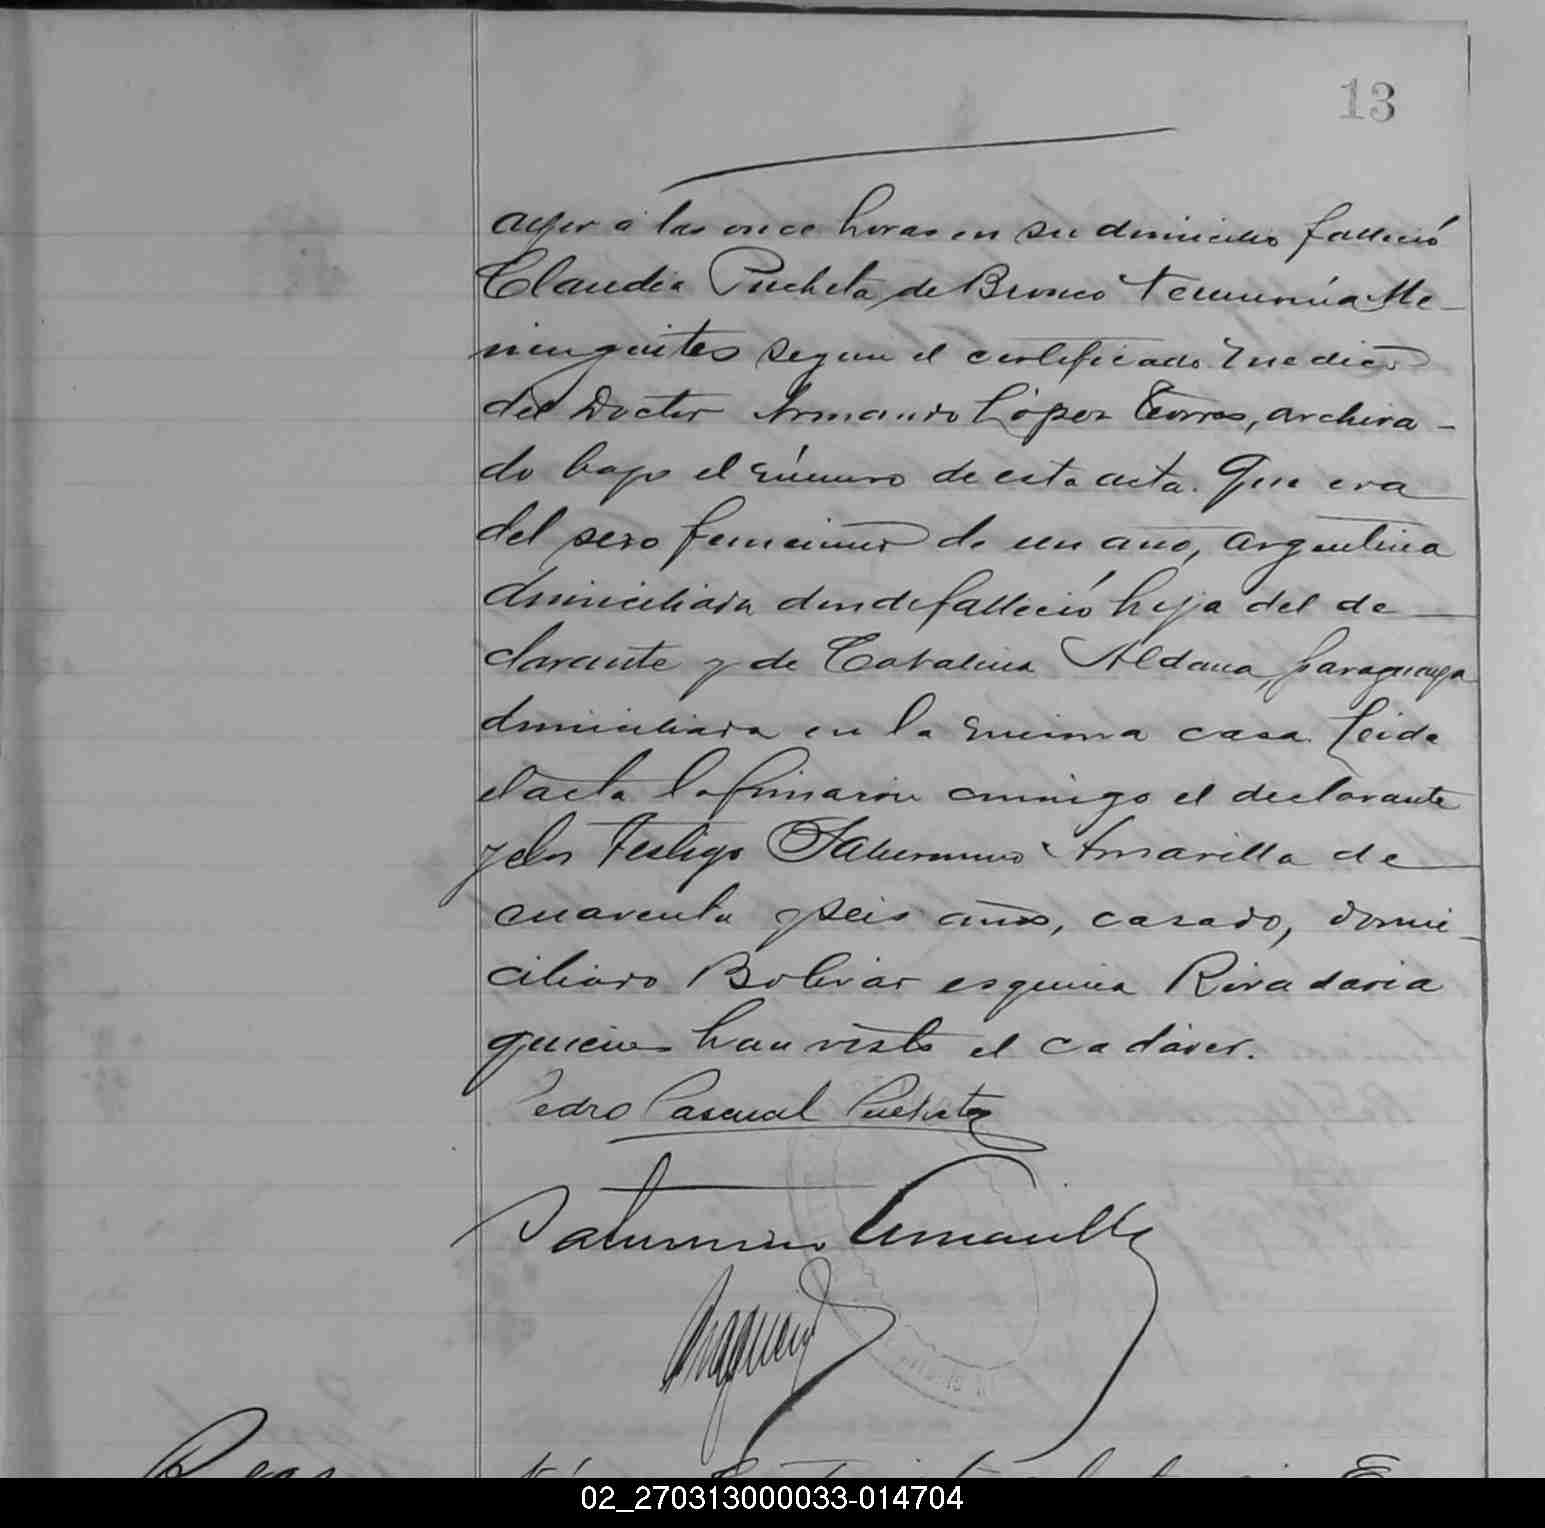 13
ayer á las once horas en su domicilio falleció
Claudia Pucheta de Bronco Neumonía Me-
ningites segun el certificado medico
del Doctor Armando López Torres, archiva-
do bajo el número de esta acta. Que era
del sexo femenino de un año, argentina
domiciliada donde falleció hija del de
clarante y de Catalina Aldana, paraguaya
domiciliada en la misma casa. Leida
el acta la firmaron conmigo el declarante
y el testigo Saturnino Amarilla de
cuarenta y seis años, casado, domi-
ciliado Bolivar esquina Rivadavia
quienes han visto el cadáver.
Pedro Pascual Pucheta
Saturnino Amarilla
02_270313000033-014704